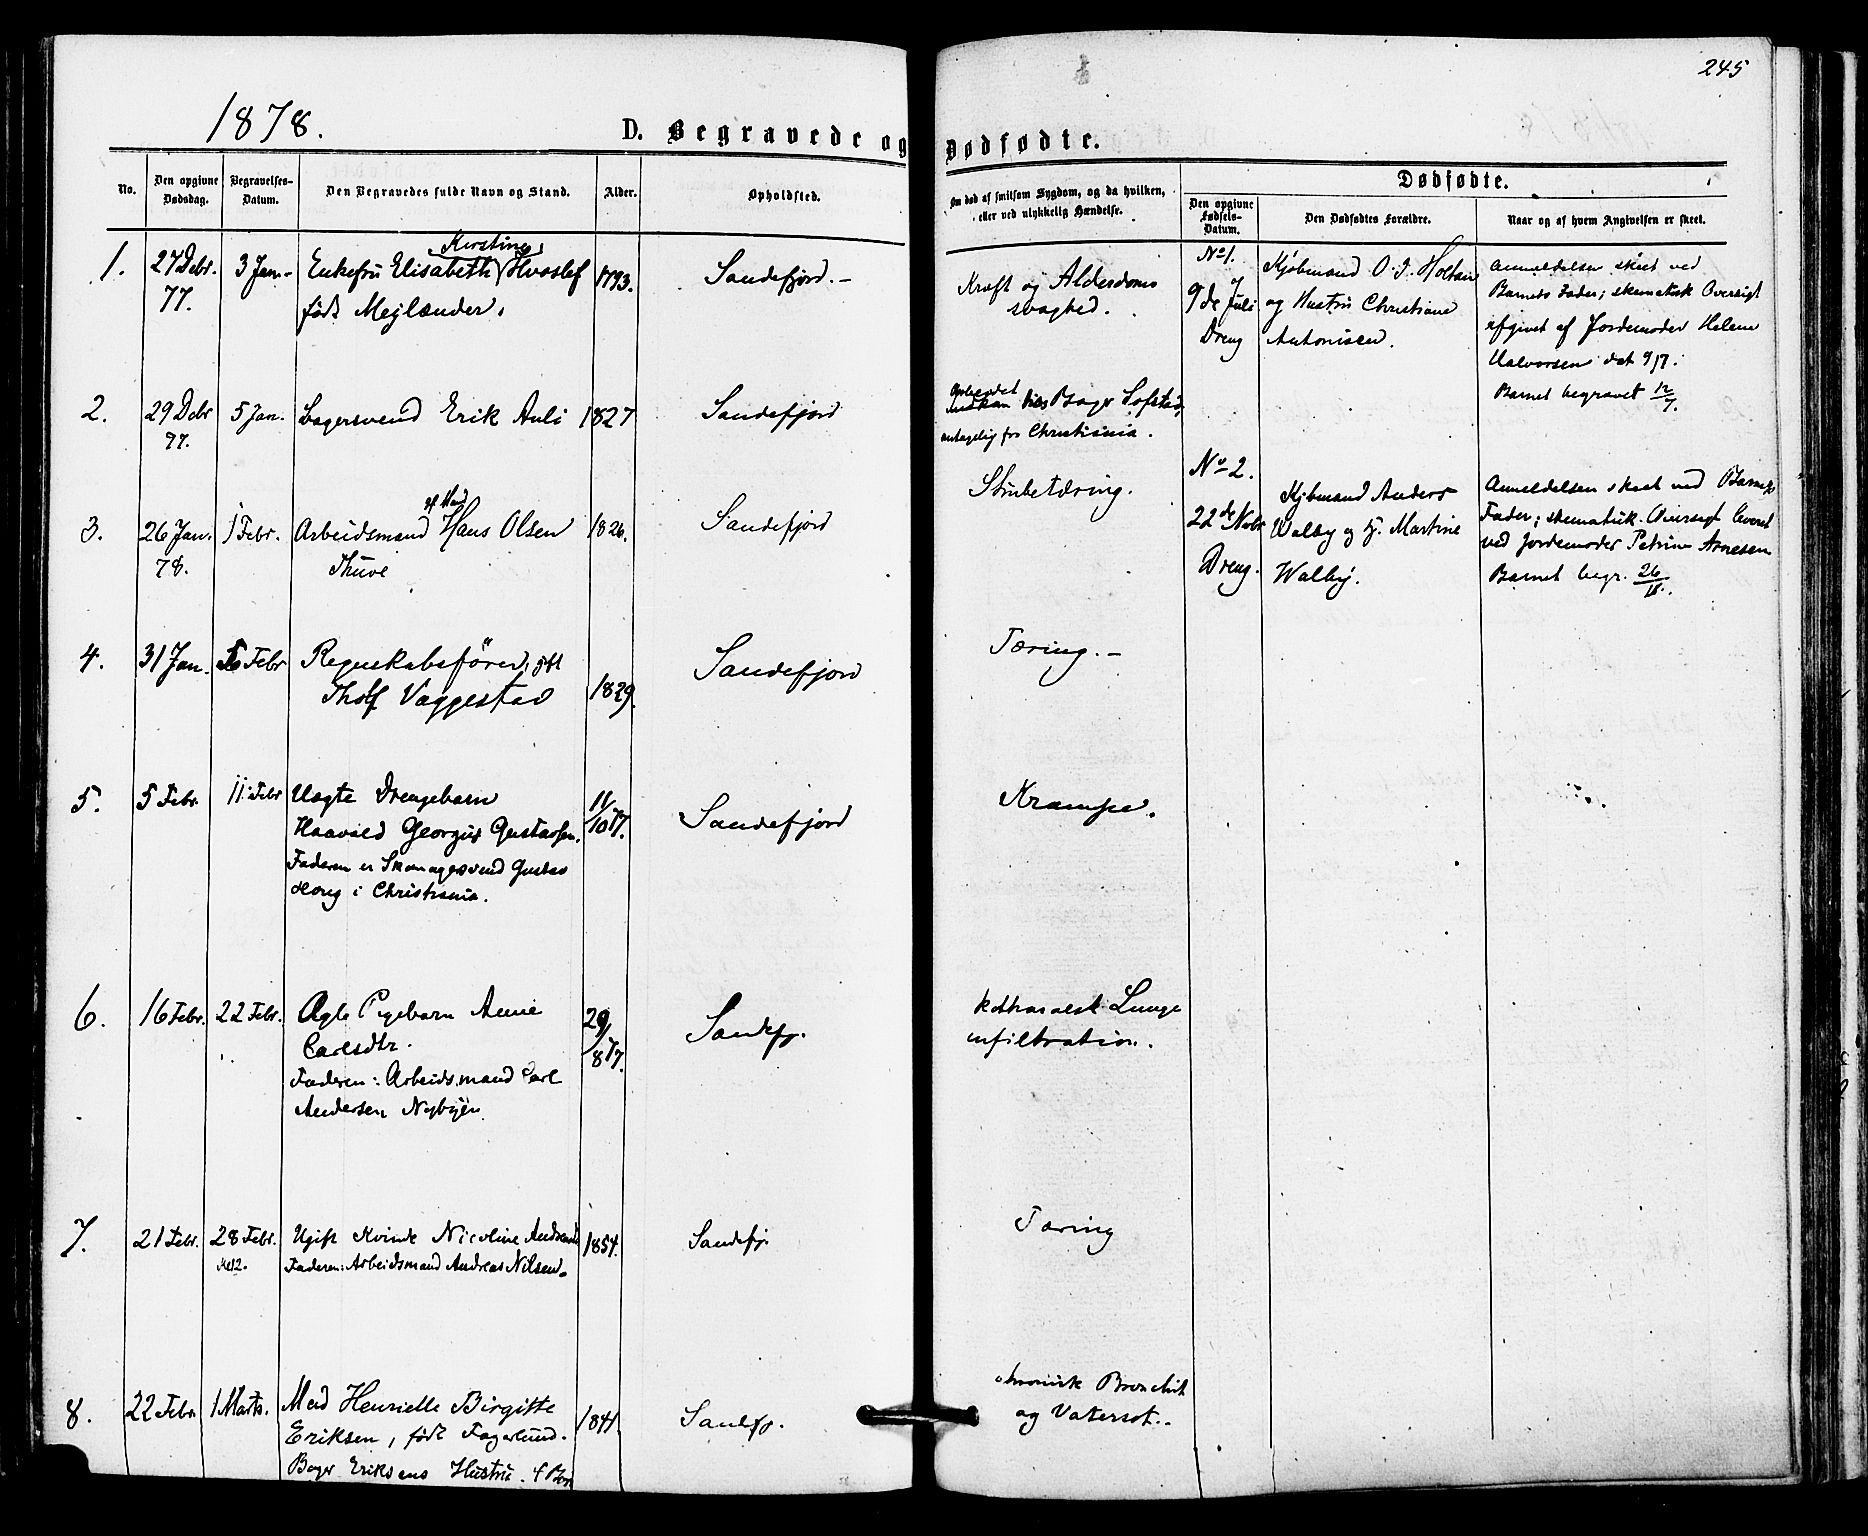 245
1878.
D. Begravede og Dødfødte.
No.
Den opgivne Dødsdag.
Begravelses-Datum.
Den Begravedes fulde Navn og Stand.
Alder.
Opholdsted.
Om død af smitsom Sygdom, og da hvilken, eller ved ulykkelig Hændelse.
Dødfødte.
Den opgivne Fødsels-Datum.
Den Dødfødtes Forældre.
Naar og af hvem Angivelsen er skeet.
1.
27 Debr. 77.
3 Jan.
Kirstine
Enkefru Elisabeth Hvoslef
født Mejlænder.
1793.
Sandefjord.-
Kræft og Alderdoms
svaghed.
2.
29 Debr 77.
5 Jan.
Bagersvend Erik Auli
1827
Sandefjord
hos Bager Sofsted,
antagelig fra Christiania.
3.
26 Jan. 78.
1 Febr.
Arbeidsmand Hans Olsen
Thuve
1826.
Sandefjord
Strubetæring.
4.
31 Jan.
Febr
Regnskabsfører,
Tholf Vaggestad
1829.
Sandefjord
Tæring.-
5.
5 Febr.
11 Febr
Uægte Drengebarn
Haavald Georgius Gustavsen.
Faderen er Skomagersvend Gustav
i Christiania.
11/10 77.
Sandefjord
Krampe.
6.
16 Febr.
22 Febr.
Ægte Pigebarn Annie
Carlsdtr.
Faderen: Arbeidsmand Carl
Andersen Nybyen
29/8 77.
Sandefj.
kathralsk Lunge
infiltration.
7.
21 Febr.
28 Febr.
Kl 12.
Ugift Kvinde Nicoline
Faderen: Arbeidsmand Andreas Nilsen.
1854.
Sandefj.
Tæring
8.
22 Febr.
1 Marts.
Mad Henriette Birgitte
Eriksen, født Fagerlund.
Bager Eriksens Hustru.
1841.
Sandefj.
chronisk Bronchit
og Vatersot.
No 1.
9de Juli
Dreng
Kjøbmand O. J. Holtan
og Hustru Christiane
Antonisen.
Anmeldelsen skeet ved
Barnets Fader; skematisk Oversigt
afgivet af Jordemoder Helene
Halvorsen dat 9/7.
Barnet begravet 12/7.
No 2.
22de Nobr
Dreng.
Kjøbmand Anders
Walby og H. Martine
Walby.
Anmeldelsen skeet ved Barnets
Fader; skematisk Oversigt leveret
ved Jordemoder Petrine Arnesen
Barnet begr. 26/11.